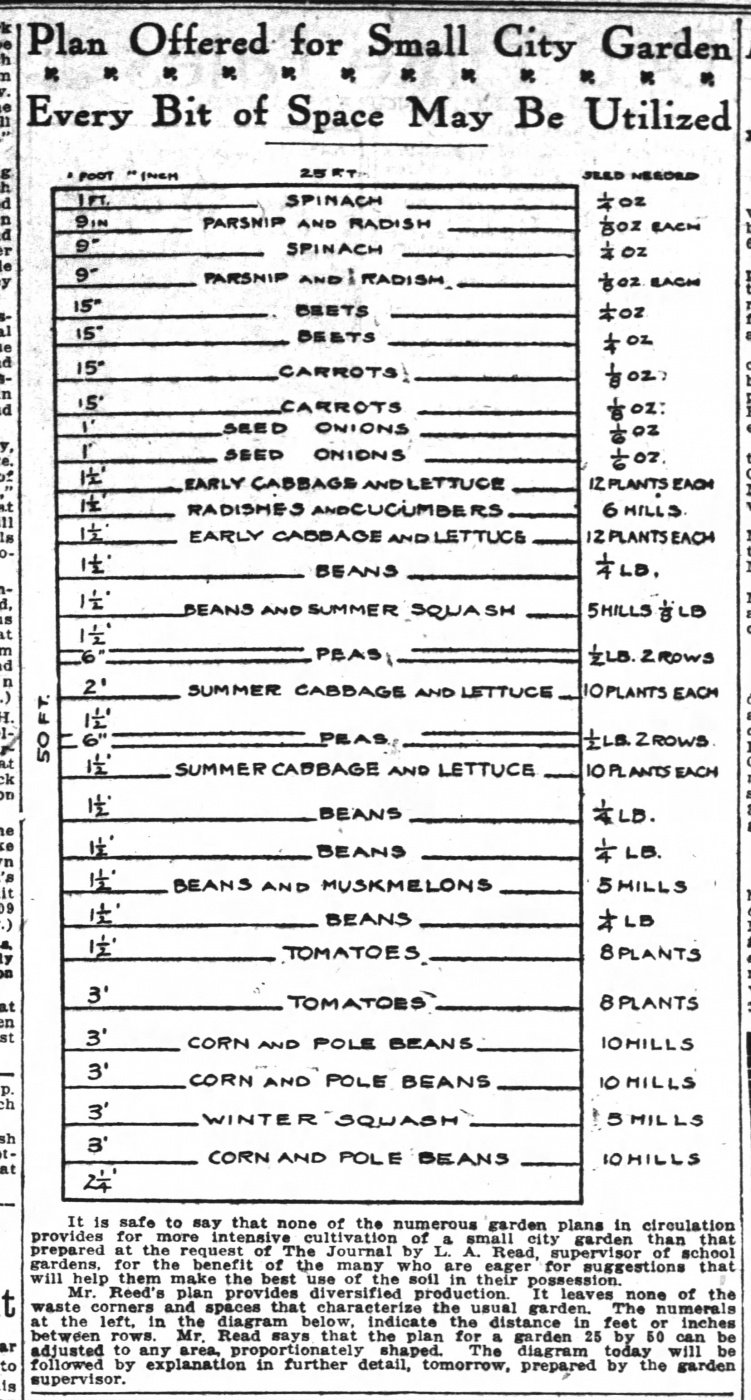 Plan Offered for Small City Garden
Every Bit of Space May Be Utilized
' FOOT " INCH 25 FT. SEED NEEDED
1 FT. SPINACH 1/4 OZ
9 IN PARSNIP AND RADISH 1/8 OZ EACH
9" SPINACH 1/4 OZ
9" PARSNIP AND RADISH 1/8 OZ EACH
15" BEETS 1/4 OZ
15" BEETS 1/4 OZ
15" CARROTS 1/8 OZ
15" CARROTS 1/8 OZ
1' SEED ONIONS 1/6 OZ
1' SEED ONIONS 1/6 OZ.
1 1/2' EARLY CABBAGE AND LETTUCE 12 PLANTS EACH
1 1/2' RADISHES AND CUCUMBERS 6 HILLS.
1 1/2' EARLY CABBAGE AND LETTUCE 12 PLANTS EACH
1 1/2' BEANS 1/4 LB.
1 1/2' BEANS AND SUMMER SQUASH 5 HILLS 1/8 LB
1 1/2'
6" PEAS 1/2 LB. 2 ROWS
2' SUMMER CABBAGE AND LETTUCE 10 PLANTS EACH
50 FT.
1 1/2'
6" PEAS 1/2 LB. 2 ROWS.
1 1/2' SUMMER CABBAGE AND LETTUCE 10 PLANTS EACH
1 1/2' BEANS 1/4 LB.
1 1/2' BEANS 1/4 LB.
1 1/2' BEANS AND MUSKMELONS 5 HILLS
1 1/2' BEANS 1/4 LB
1 1/2' TOMATOES 8 PLANTS
3' TOMATOES 8 PLANTS
3' CORN AND POLE BEANS 10 HILLS
3' CORN AND POLE BEANS 10 HILLS
3' WINTER SQUASH 5 HILLS
3' CORN AND POLE BEANS 10 HILLS
2 1/4'
It is safe to say that none of the numerous garden plans in circulation
provides for more intensive cultivation of a small city garden than that
prepared at the request of The Journal by L. A. Read, supervisor of school
gardens, for the benefit of the many who are eager for suggestions that
will help them make the best use of the soil in their possession.
Mr. Reed's plan provides diversified production. It leaves none of the
waste corners and spaces that characterize the usual garden. The numerals
at the left, in the diagram below, indicate the distance in feet or inches
between rows. Mr. Read says that the plan for a garden 25 by 50 can be
adjusted to any area, proportionately shaped. The diagram today will be
followed by explanation in further detail, tomorrow, prepared by the garden
supervisor.